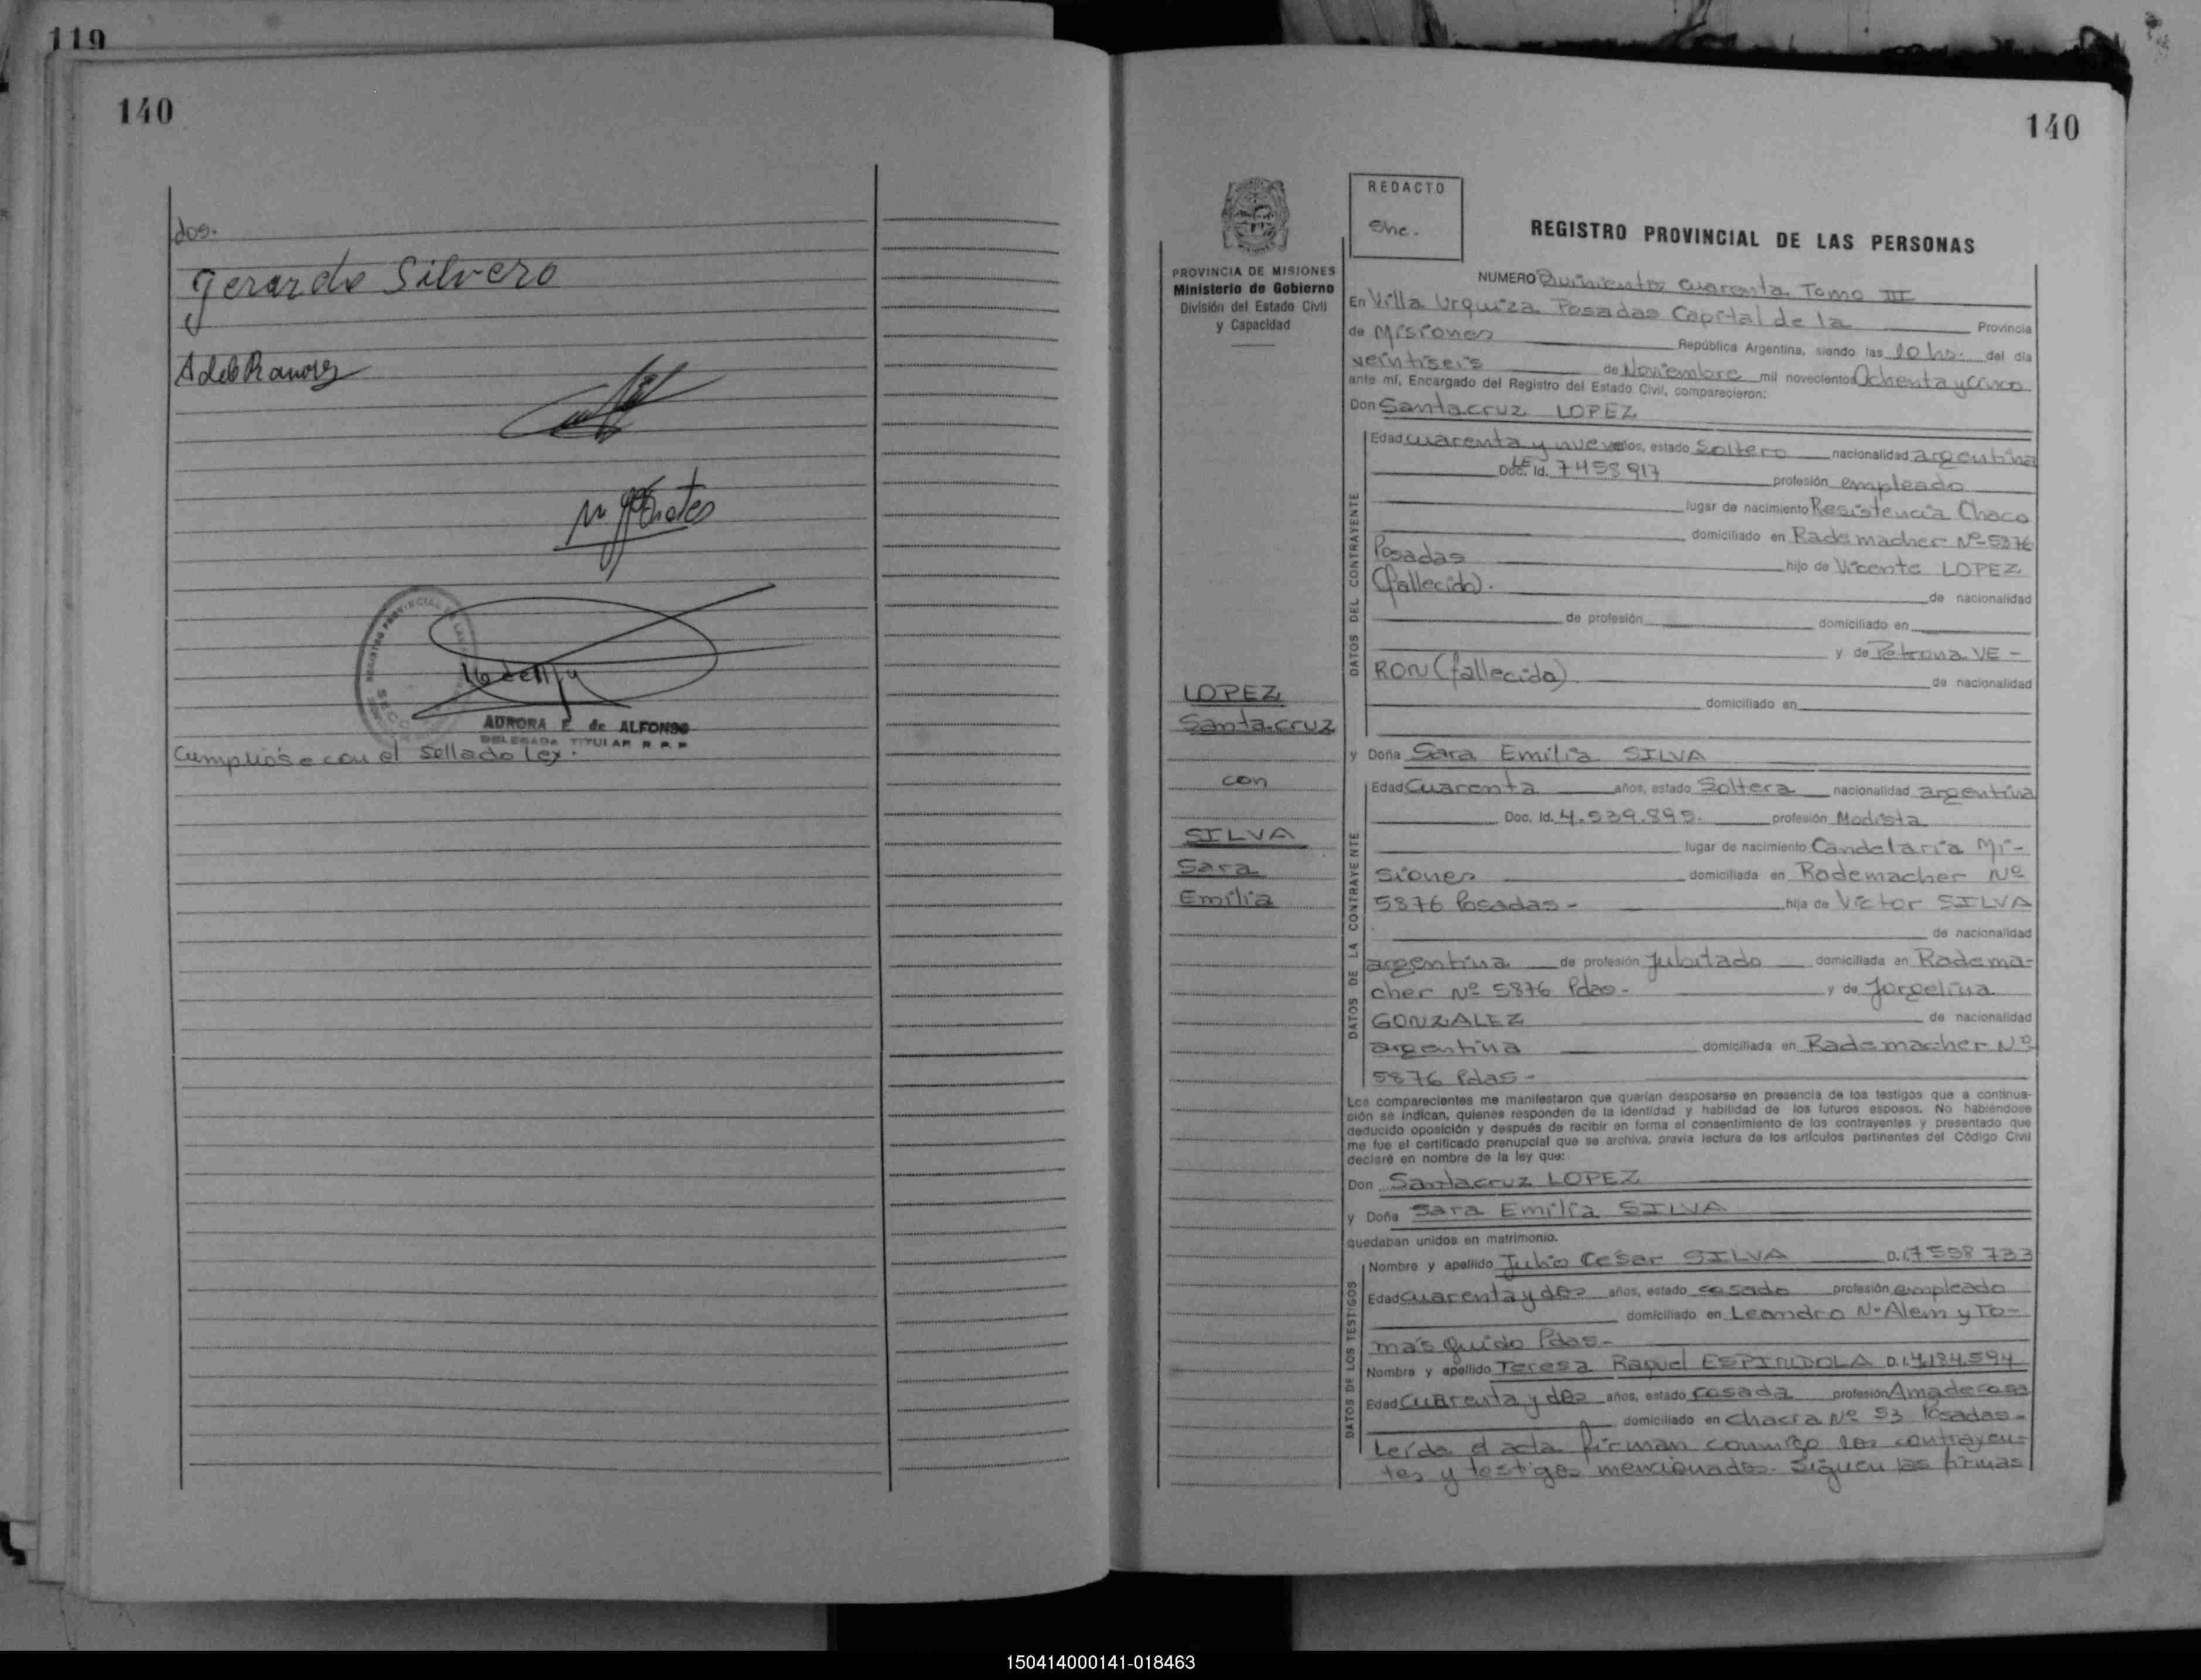 119
140
dos.
Gerardo Silvero
AURORA E. de ALFONSO
DELEGADA TITULAR R.P.P
Cumplióse con el sellado ley.
140
PROVINCIA DE MISIONES
Ministerio de Gobierno
División del Estado Civil
y Capacidad
LOPEZ
Santacruz
con
SILVA
Sara
Emilia
REDACTO
She.
REGISTRO PROVINCIAL DE LAS PERSONAS
NUMERO Quinientos cuarenta Tomo III
En Villa Urquiza Posadas Capital de la Provincia
de Misiones República Argentina, siendo las 10 hs. del día
veintiseis de Noviembre mil novecientos Ochenta y cinco
ante mí, Encargado del Registro del Estado Civil, comparecieron:
Don Santacruz LOPEZ
DATOS DEL CONTRAYENTE
Edad cuarenta y nueve años, estado Soltero nacionalidad argentina
Doc. Id. LE 7458917 profesión empleado
lugar de nacimiento Resistencia Chaco
domiciliado en Rademacher Nº 5876
Posadas hijo de Vicente LOPEZ
(fallecido). de nacionalidad
de profesión domiciliado en
y de Petrona VE-
RON (fallecida) de nacionalidad
domiciliado en
y Doña Sara Emilia SILVA
DATOS DE LA CONTRAYENTE
Edad Cuarenta años, estado Soltera nacionalidad argentina
Doc. Id. 4.539.895. profesión Modista
lugar de nacimiento Candelaria Mi-
siones domiciliada en Rademacher Nº
5876 Posadas- hija de Víctor SILVA
de nacionalidad
argentina de profesión Jubilado domiciliada en Radema-
cher Nº 5876 Pdas- y de Jorgelina
GONZALEZ de nacionalidad
argentina domiciliada en Rademacher Nº
5876 Pdas-
Los comparecientes me manifestaron que querían desposarse en presencia de los testigos que a continua-
ción se indican, quienes responden de la identidad y habilidad de los futuros esposos. No habiéndose
deducido oposición y después de recibir en forma el consentimiento de los contrayentes y presentado que
me fue el certificado prenupcial que se archiva, previa lectura de los artículos pertinentes del Código Civil
declaré en nombre de la ley que:
Don Santacruz LOPEZ
y Doña Sara Emilia SILVA
quedaban unidos en matrimonio.
DATOS DE LOS TESTIGOS
Nombre y apellido Julio César SILVA D.I. 7598733
Edad cuarenta y dos años, estado casado profesión empleado
domiciliado en Leandro N. Alem y To-
más Guido Pdas-
Nombre y apellido Teresa Raquel ESPINDOLA D.I. 4.184.594
Edad Cuarenta y dos años, estado casada profesión Ama de casa
domiciliado en Chacra Nº 53 Posadas-
Leída el acta firman conmigo los contrayen-
tes y testigos mencionados. Siguen las firmas
150414000141-018463